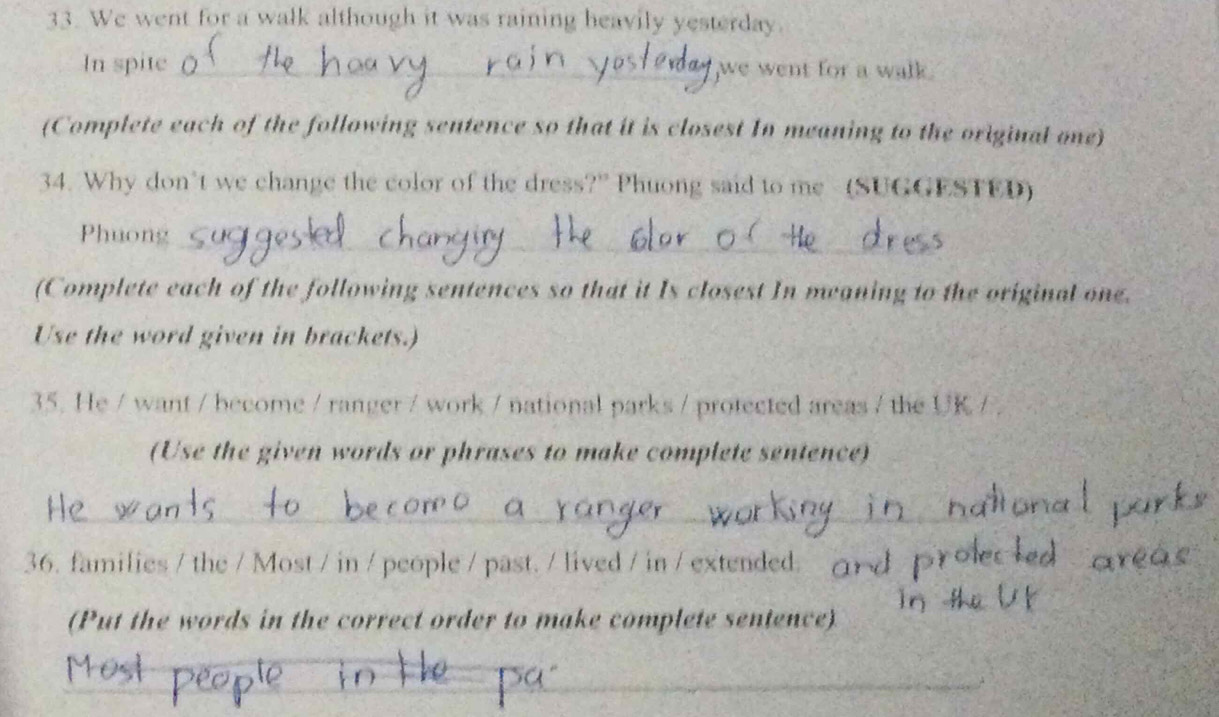 33. We went for a walk although it was raining heavily yesterday.
In spite of the heavy rain yesterday, we went for a walk.
(Complete each of the following sentence so that it is closest In meaning to the original one)
34. Why don't we change the color of the dress?" Phuong said to me (SUGGESTED)
Phuong suggested changing the color of the dress
(Complete each of the following sentences so that it Is closest In meaning to the original one.
Use the word given in brackets.)
35. He / want / become / ranger / work / national parks / protected areas / the UK / .
(Use the given words or phrases to make complete sentence)
He wants to become a ranger working in national parks
36. families / the / Most / in / people / past. / lived / in / extended. and protected areas
in the UK
(Put the words in the correct order to make complete sentence)
Most people in the pa